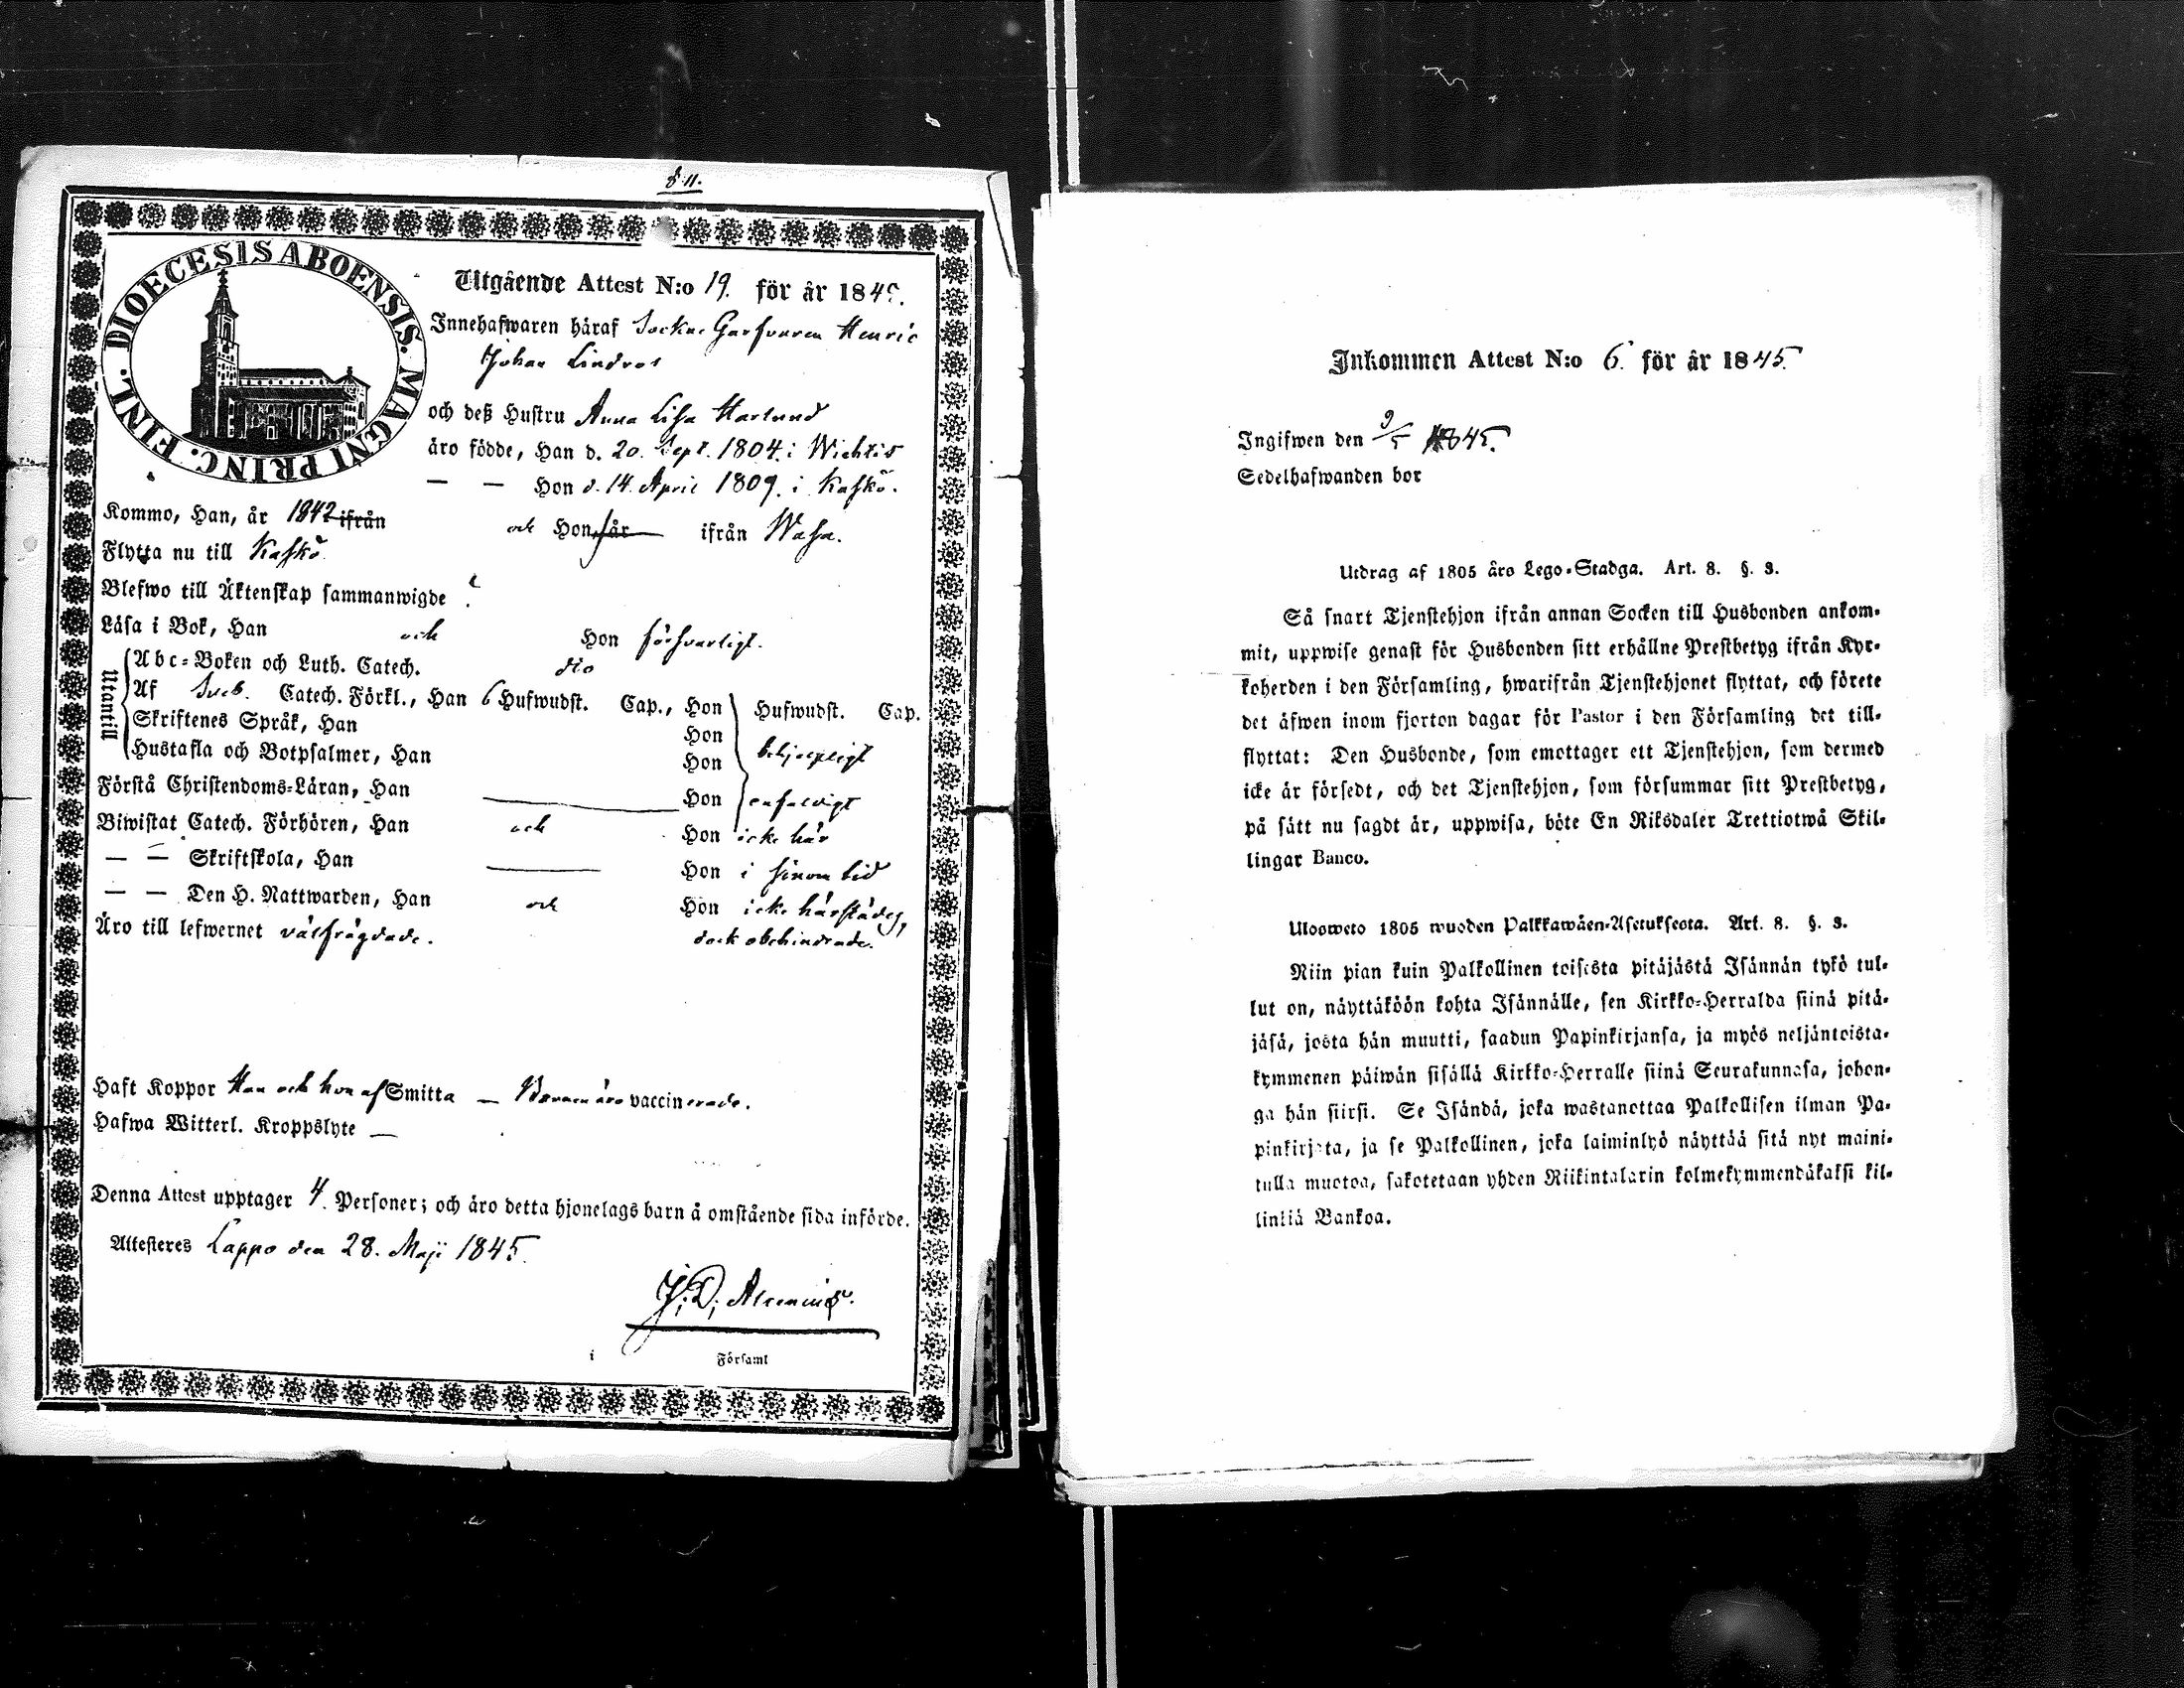 § 11.
DIOECESIS ABOENSIS. MAGNI PRINC. FINL.
Utgående Attest N:o 19. för år 1845.
Innehafwaren häraf Sockne Garfvaren Henric
Johan Lindros
och deß Hustru Anna Lisa Harlund
äro födde, Han d. 20. Sept. 1804. i Wichtis
— — Hon d. 14. April 1809. i Kaskö.
Kommo, Han, år 1842 ifrån och Hon, år ifrån Wasa.
Flytta nu till Kaskö
Blefwo till Äktenskap sammanwigde
Läsa i Bok, Han och Hon försvarligt.
Utantill
Abc-Boken och Luth. Catech. dto
Af Sveb. Catech. Förkl., Han 6 Hufwudst. Cap., Hon Hufwudst. Cap.
Skriftenes Språk, Han Hon
Hustafla och Botpsalmer, Han Hon behjelpligt
Förstå Christendoms-Läran, Han — Hon enfaldigt
Biwistat Catech. Förhören, Han och Hon icke här
— — Skriftskola, Han — Hon i sinom tid
— — Den H. Nattwarden, Han och Hon icke härstädes,
dock obehindrade.
Äro till lefwernet välfrägdade.
Haft Koppor Han och hon af Smitta — Barnen äro vaccinerade.
Hafwa Witterl. Kroppslyte —
Denna Attest upptager 4. Personer; och äro detta hjonelags barn å omstående sida införde.
Attesteres Lappo den 28. Maji 1845.
J. D. Alcenius.
i Församl
Inkommen Attest N:o 6. för år 1845.
Ingifwen den 9/5 1845.
Sedelhafwanden bor
Utdrag af 1805 års Lego-Stadga. Art. 8. §. 3.
Så snart Tjenstehjon ifrån annan Socken till Husbonden ankom-
mit, uppwise genast för Husbonden sitt erhållne Prestbetyg ifrån Kyr-
koherden i den Församling, hwarifrån Tjenstehjonet flyttat, och förete
det äfwen inom fjorton dagar för Pastor i den Församling det till-
flyttat: Den Husbonde, som emottager ett Tjenstehjon, som dermed
icke är försedt, och det Tjenstehjon, som försummar sitt Prestbetyg,
på sätt nu sagdt är, uppwisa, böte En Riksdaler Trettiotwå Skil-
lingar Banco.
Uloosweto 1805 wuoden Palkkawäen-Asetuksesta. Art. 8. §. 3.
Niin pian kuin Palkollinen toisesta pitäjästä Isännän tykö tul-
lut on, näyttäköön kohta Isännälle, sen Kirkko-Herralda siinä pitä-
jäsä, josta hän muutti, saadun Papinkirjansa, ja myös neljäntoista-
kymmenen päiwän sisällä Kirkko-Herralle siinä Seurakunnasa, johon-
ga hän siirsi. Se Isändä, joka wastanottaa Palkollisen ilman Pa-
pinkirjata, ja se Palkollinen, joka laiminlyö näyttää sitä nyt maini-
tulla muotoa, sakotetaan yhden Riikintalarin kolmekymmendäkaksi kil-
linkiä Bankoa.